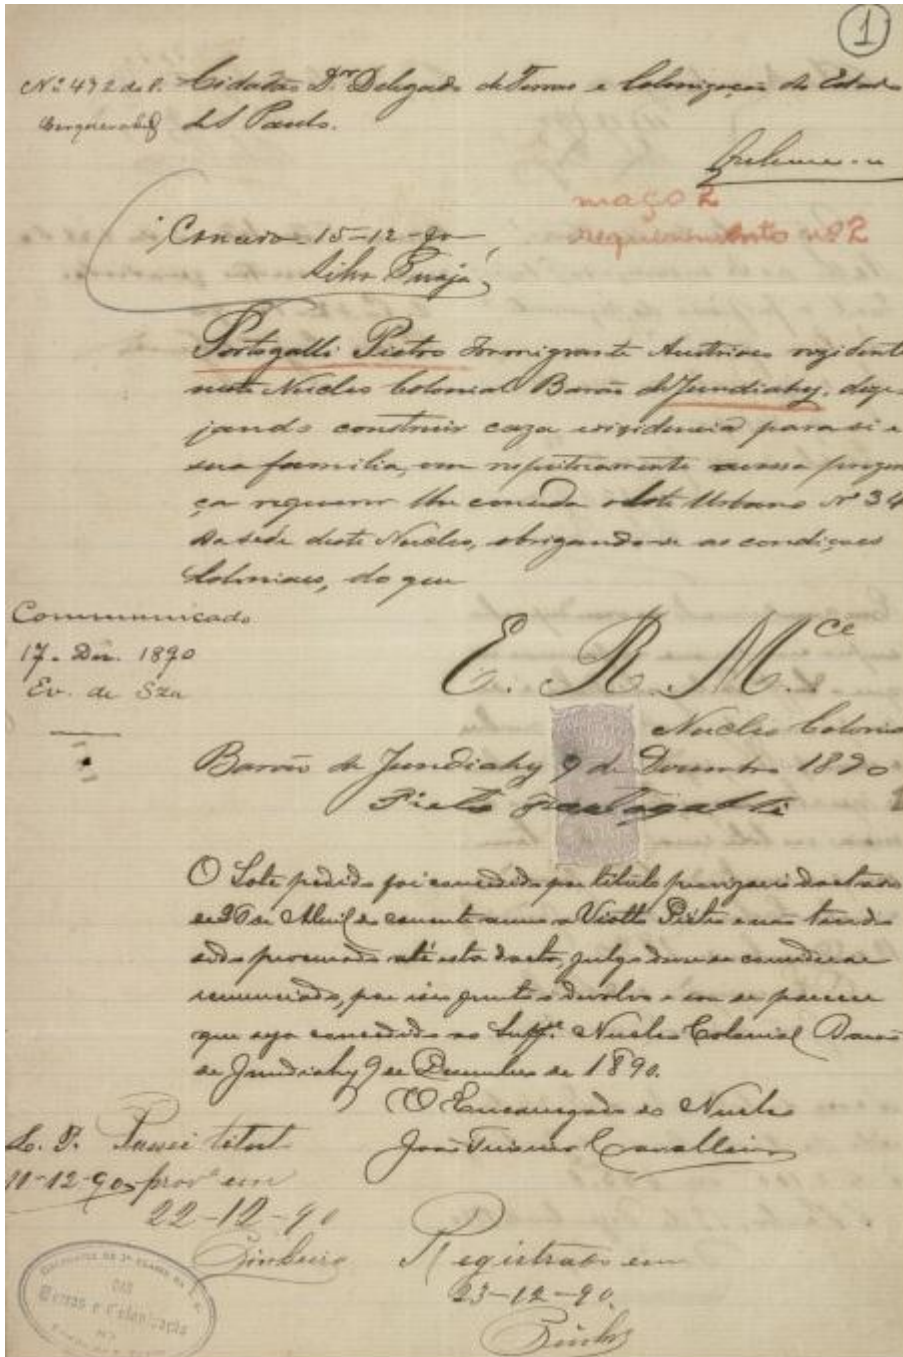 1
Nº 472 de P. Cidadão Dr. Delegado de Terras e Colonização do Estado
de S Paulo.
maço 2
requerimento nº 2
Concedo 15-12-90
Portogalli Pietro Immigrante Austriaco rezidente
neste Nucleo Colonial Barão de Jundiahy, deze-
jando construir caza e rezidencia para si e
sua familia, vem respeitosamente a vossa prezen
ça requerer lhe conceda o lote Urbano Nº 34
da sede deste Nucleo, obrigando-se as condiçoes
Coloniaes, do que
Communicado
17. Dez. 1890
Ev. de Sza
E. R. M.ce
Nucleo Colonial
Barão de Jundiahy 9 de Dezembro 1890
Pietro Portogalli
O Lote pedido foi concedido por titulo provizorio dactado
de 26 de Abril do corrente anno a Viotto Pietro e não tendo
sido procurado até esta dacta, julgo deve-se considerar
renunciado, por isso junto o devolvo e sou de parecer
que seja concedido ao Supp.e Nucleo Colonial Barão
de Jundiahy 9 de Dezembro de 1890.
O Encarregado do Nucleo
João Cavalleiro
L. P. Passei titul.
11-12-90 prov.º em
22-12-90
Registrado em
23-12-90.
Terras e Colonização